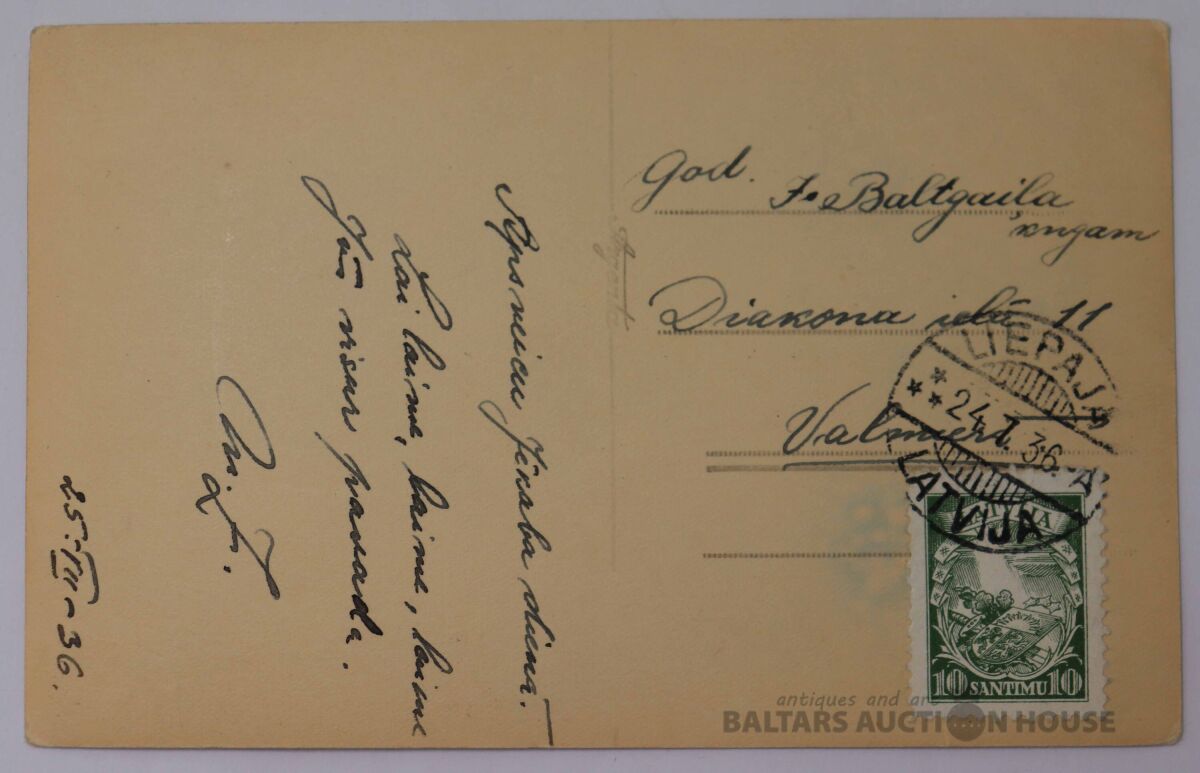 Apsveicu Jēkaba dienā.
Lai laime, laime, laime
Jūs visur pavada.
25. VII - 36.
God. J. Baltgaila
kngam
Diakona ielā 11
Valmierā
LIEPAJA
24.7.36 - A
LATVIJA
LATVIJA
10 SANTIMU 10
antiques and art
BALTARS AUCTION HOUSE